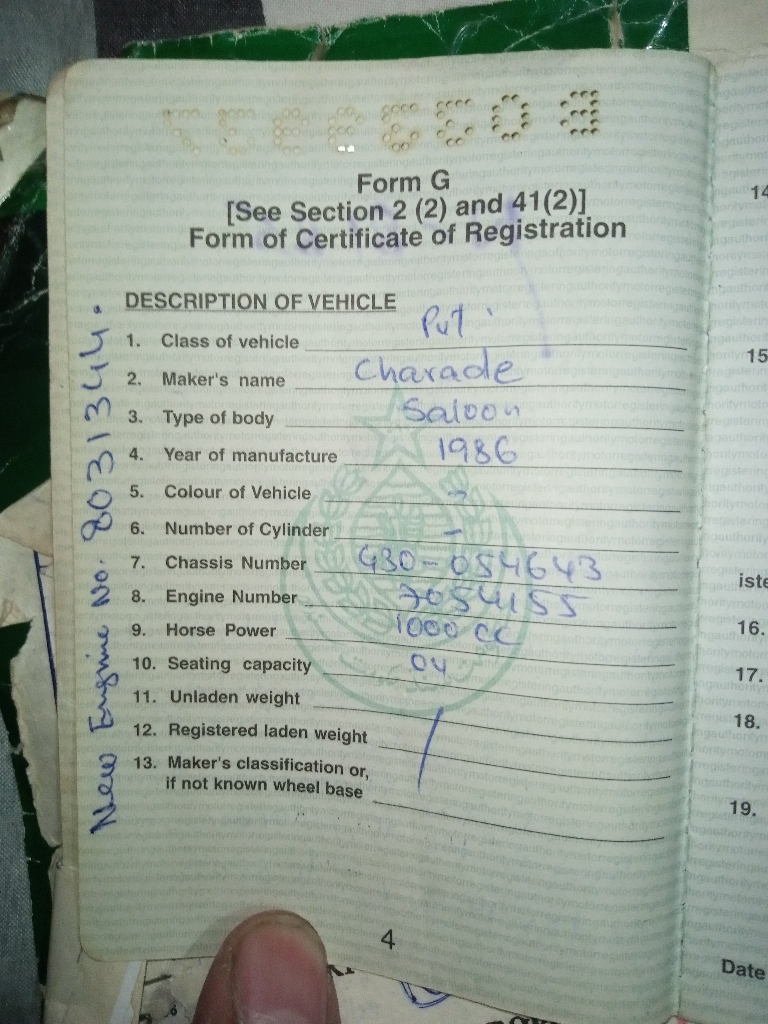 Form G
[See Section 2 (2) and 41(2)]
Form of Certificate of Registration
DESCRIPTION OF VEHICLE
1. Class of vehicle Pvt
2. Maker's name Charade
3. Type of body Saloon
4. Year of manufacture 1986
5. Colour of Vehicle
6. Number of Cylinder -
7. Chassis Number G30-054643
8. Engine Number 7054155
9. Horse Power 1000 cc
10. Seating capacity 04
11. Unladen weight
12. Registered laden weight
13. Maker's classification or,
if not known wheel base
New Engine No. 8031344.
4
14
15
iste
16.
17.
18.
19.
Date